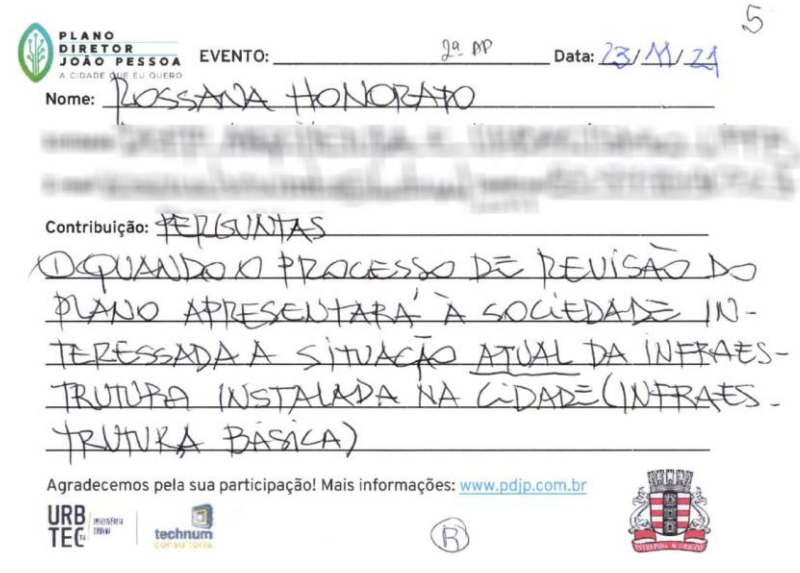 5
PLANO
DIRETOR
JOÃO PESSOA
A CIDADE QUE EU QUERO
EVENTO: 2ª AP Data: 23/11/21
Nome: ROSSANA HONORATO
Contribuição: PERGUNTAS
QUANDO O PROCESSO DE REVISÃO DO
PLANO APRESENTARÁ À SOCIEDADE IN-
TERESSADA A SITUAÇÃO ATUAL DA INFRAES-
TRUTURA INSTALADA NA CIDADE (INFRAES-
TRUTURA BÁSICA)
Agradecemos pela sua participação! Mais informações: www.pdjp.com.br
URB
TEC
technum
consultoria
R